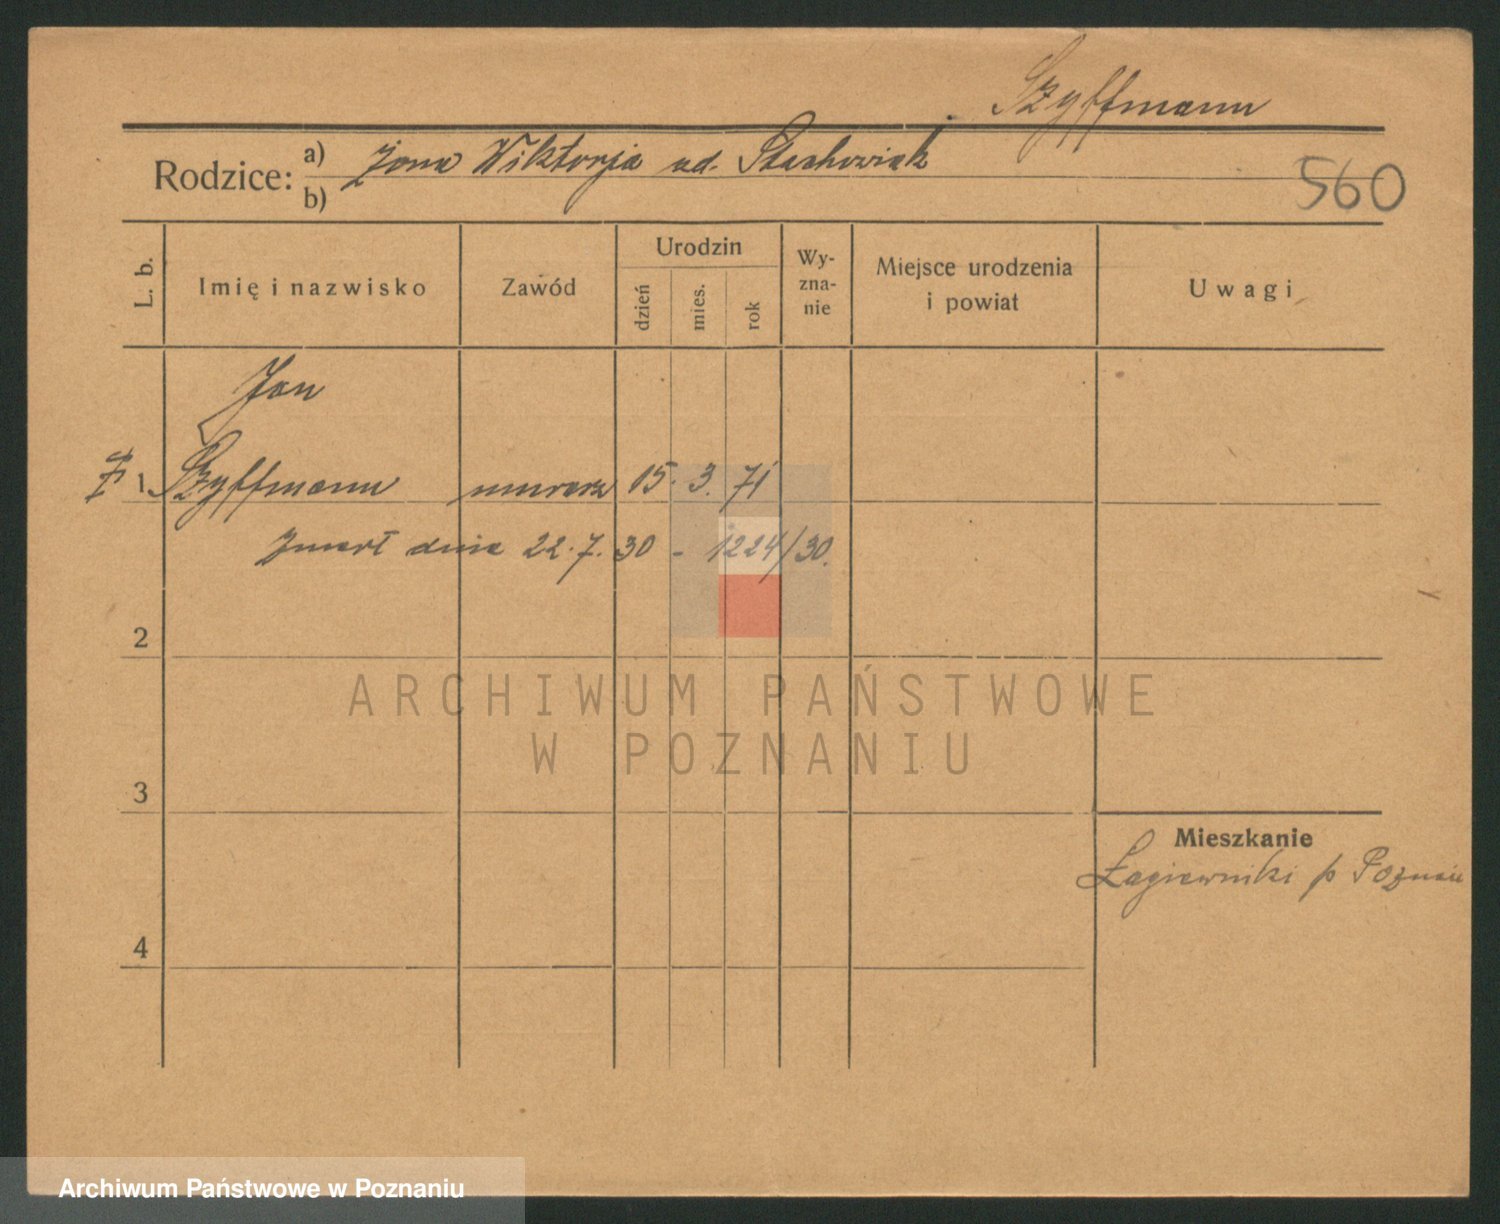 Szyffmann
Rodzice: a) żona Wiktorja ud. Stachowiak
b)
560
L. b.
Imię i nazwisko
Zawód
Urodzin
dzień
mies.
rok
Wy-
zna-
nie
Miejsce urodzenia
i powiat
Uwagi
Jan
1 Szyffmann murarz 15. 3. 71
Zmarł dnia 22.7.30 - 1224/30.
2
ARCHIWUM PAŃSTWOWE
W POZNANIU
3
Mieszkanie
Łagiewniki p Poznań
4
Archiwum Państwowe w Poznaniu